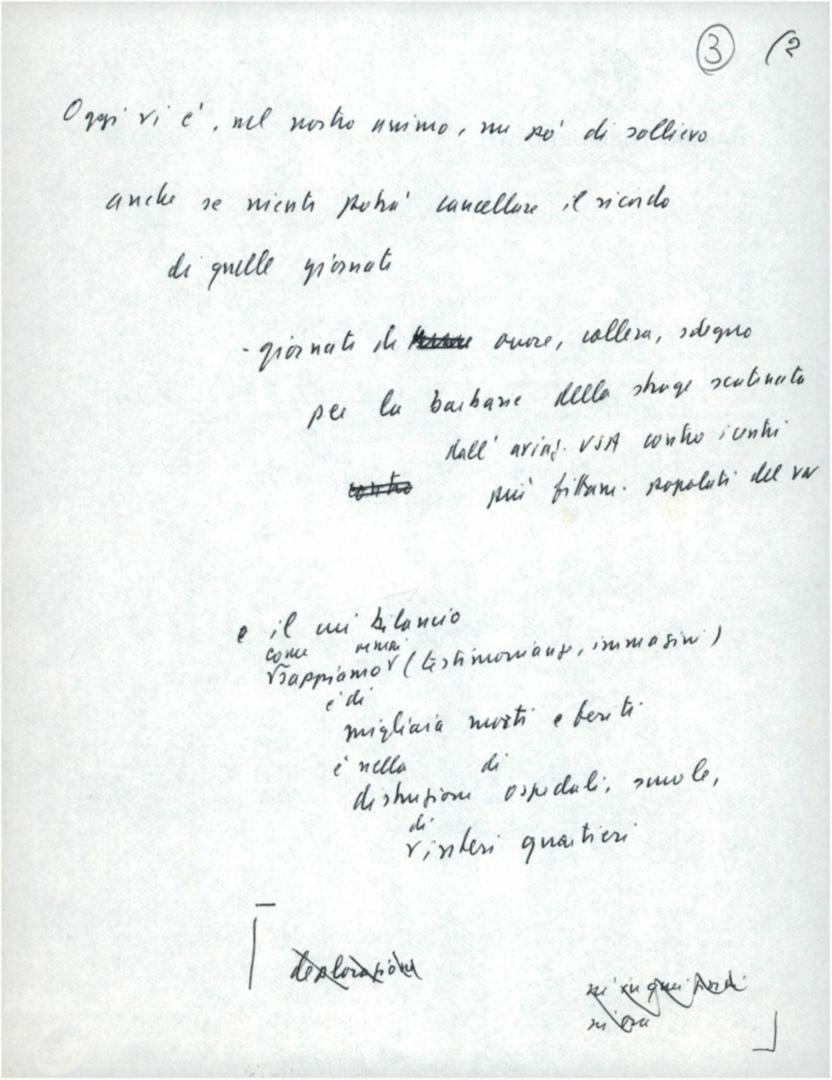 3 (2
Oggi vi è, nel nostro animo, un pò di sollievo
anche se niente potrà cancellare il ricordo
di quelle giornate
- giornate di orrore, collera, sdegno
per la barbarie della strage scatenata
dall' aviaz. USA contro i centri
contro più fittam. popolati del VN
e il cui bilancio
come ormai
sappiamo (testimonianze, immagini)
è di
migliaia morti e feriti
è nella di
distruzione ospedali, scuole,
di
interi quartieri
deplorazione
né in quei
né ora